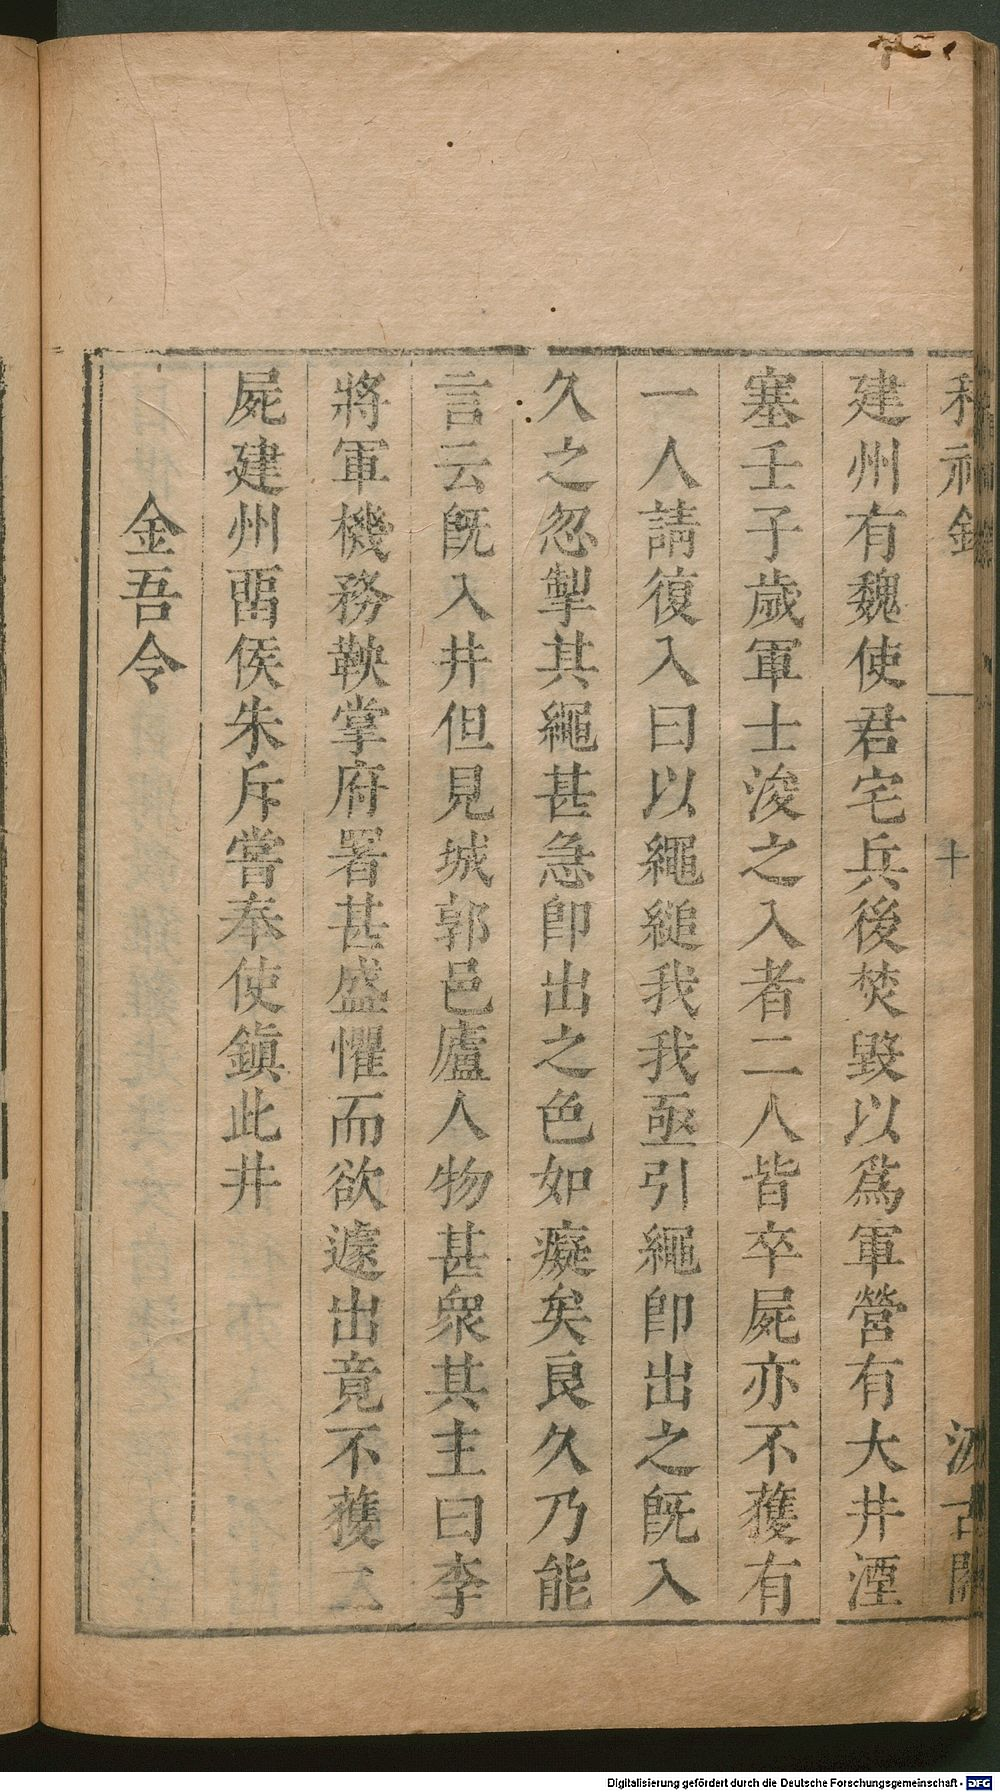 十
建州有魏使君宅兵後焚毀以爲軍營有大井湮
塞壬子歲軍士浚之入者二人皆卒屍亦不獲有
一人請復入曰以繩縋我我亟引繩卽出之旣入
久之忽掣其繩甚急卽出之色如癡矣良久乃能
言云旣入井但見城郭邑廬人物甚衆其主曰李
將軍機務鞅掌府署甚盛懼而欲遽出竟不獲二
屍建州畱侯朱斥嘗奉使鎭此井
金吾令
Digitalisierung gefördert durch die Deutsche Forschungsgemeinschaft - DFG